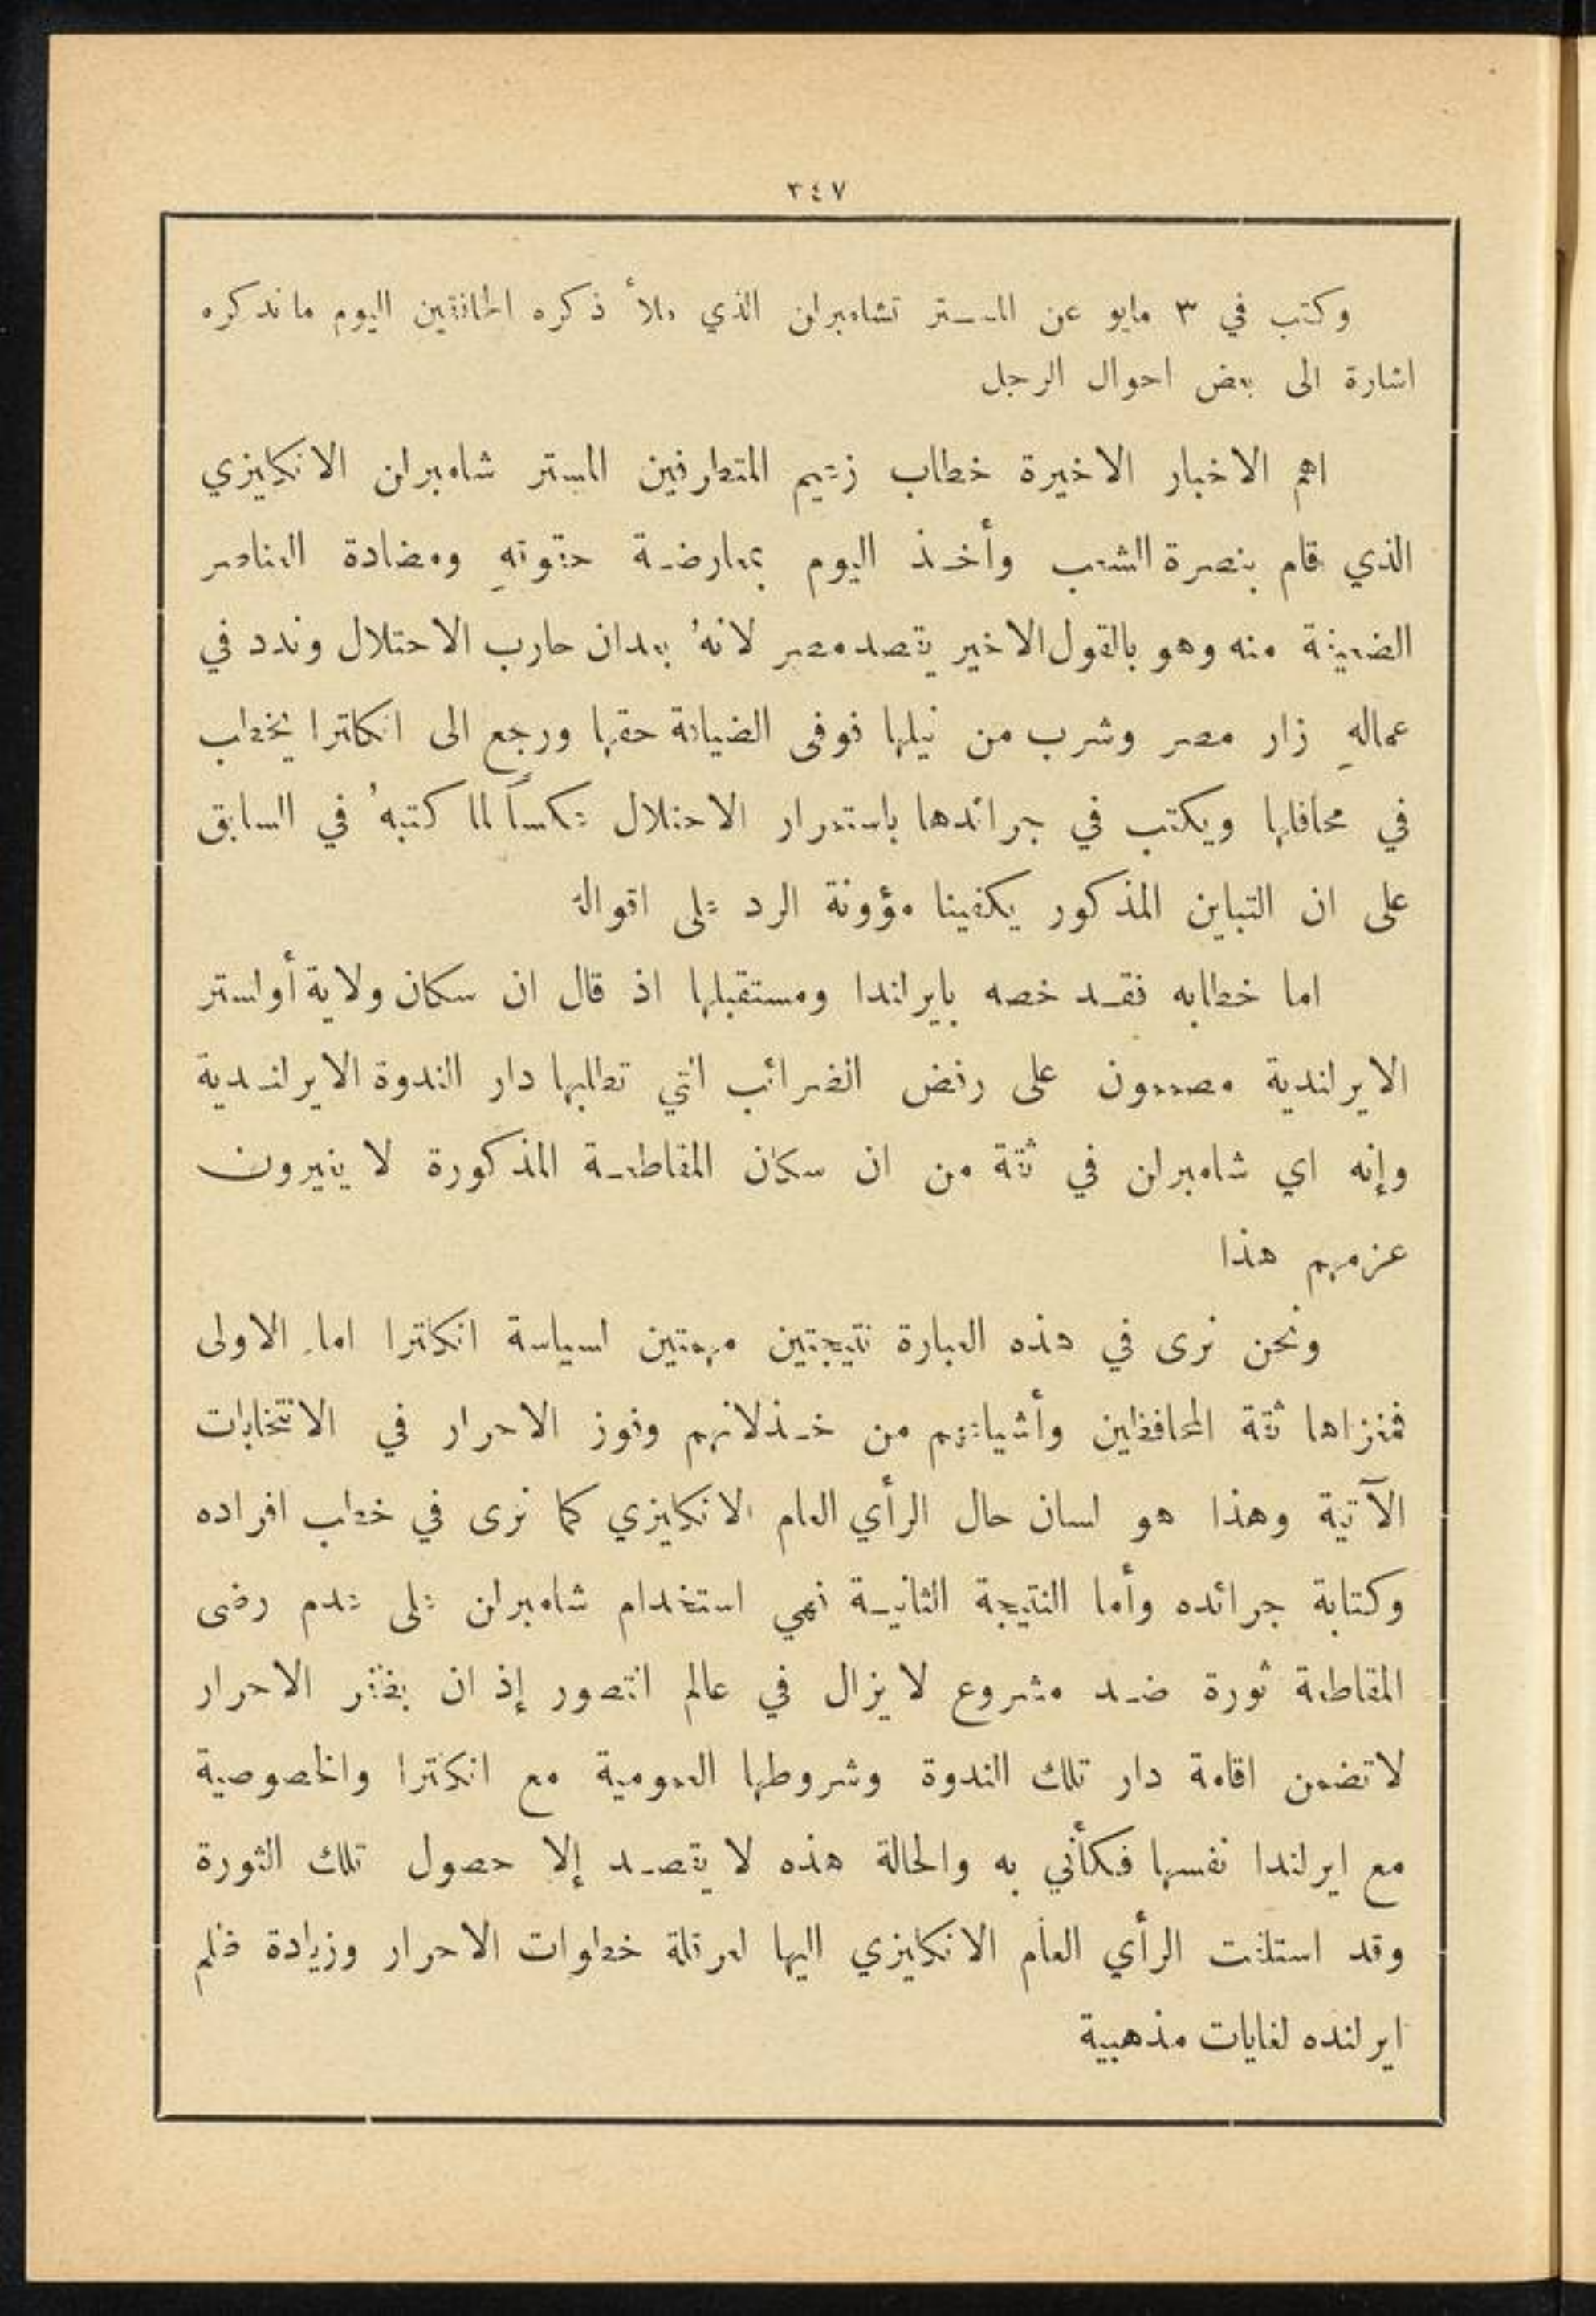 ٣٤٧
وكتب في ٣ مايو عن المستر تشامبرلن الذي ملأ ذكره الخافقين اليوم ما نذكره
اشارة الى بعض احوال الرجل
اهم الاخبار الاخيرة خطاب زعيم المتطرفين المستر شامبرلن الانكليزي
الذي قام بنصرة الشعب وأخذ اليوم بمعارضة حقوقهِ ومضادة العناصر
الضعيفة منه وهو بالقول الاخير يقصد مصر لانهُ بعد ان حارب الاحتلال وندد في
عمالهِ زار مصر وشرب من نيلها فوفى الضيافة حقها ورجع الى انكلترا يخطب
في محافلها ويكتب في جرائدها باستمرار الاحتلال عكساً لما كتبهُ في السابق
على ان التباين المذكور يكفينا مؤونة الرد على اقواله
اما خطابه فقد خصه بايرلندا ومستقبلها اذ قال ان سكان ولاية أولستر
الايرلندية مصممون على رفض الضرائب التي تطلبها دار الندوة الايرلندية
وإنه اي شامبرلن في ثقة من ان سكان المقاطعة المذكورة لا يغيرون
عزمهم هذا
ونحن نرى في هذه العبارة نتيجتين مهمتين لسياسة انكلترا اما الاولى
فمغزاها ثقة المحافظين وأشياعهم من خذلانهم وفوز الاحرار في الانتخابات
الآتية وهذا هو لسان حال الرأي العام الانكليزي كما نرى في خطب افراده
وكتابة جرائده وأما النتيجة الثانية فهي استخدام شامبرلن على عدم رضى
المقاطعة ثورة ضد مشروع لا يزال في عالم التصور إذ ان الاحرار
لا تضمن اقامة دار تلك الندوة وشروطها العمومية مع انكلترا والخصوصية
مع ايرلندا نفسها فكأني به والحالة هذه لا يقصد إلا حصول تلك الثورة
وقد استلفت الرأي العام الانكليزي اليها لعرقلة خطوات الاحرار وزيادة ظلم
ايرلنده لغايات مذهبية